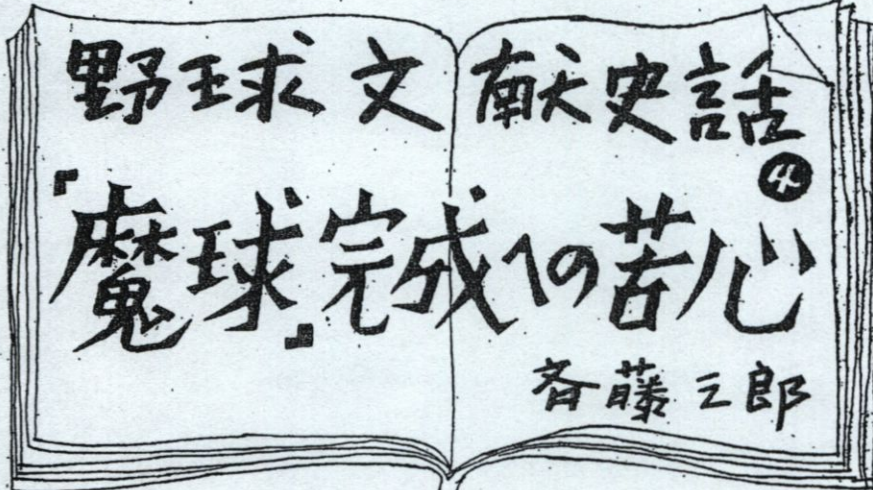 野球文献史話
④
「魔球」完成への苦心
斉藤三郎